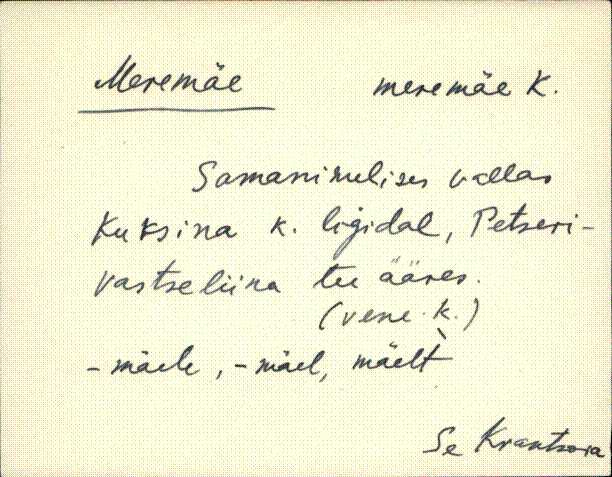 Meremäe meremäe K.
Samanimelises vallas
Kuksina k. ligidal, Petseri-
Vastseliina tee ääres.
(vene k.)
-mäele, -mäel, mäelt
Se Krantsova